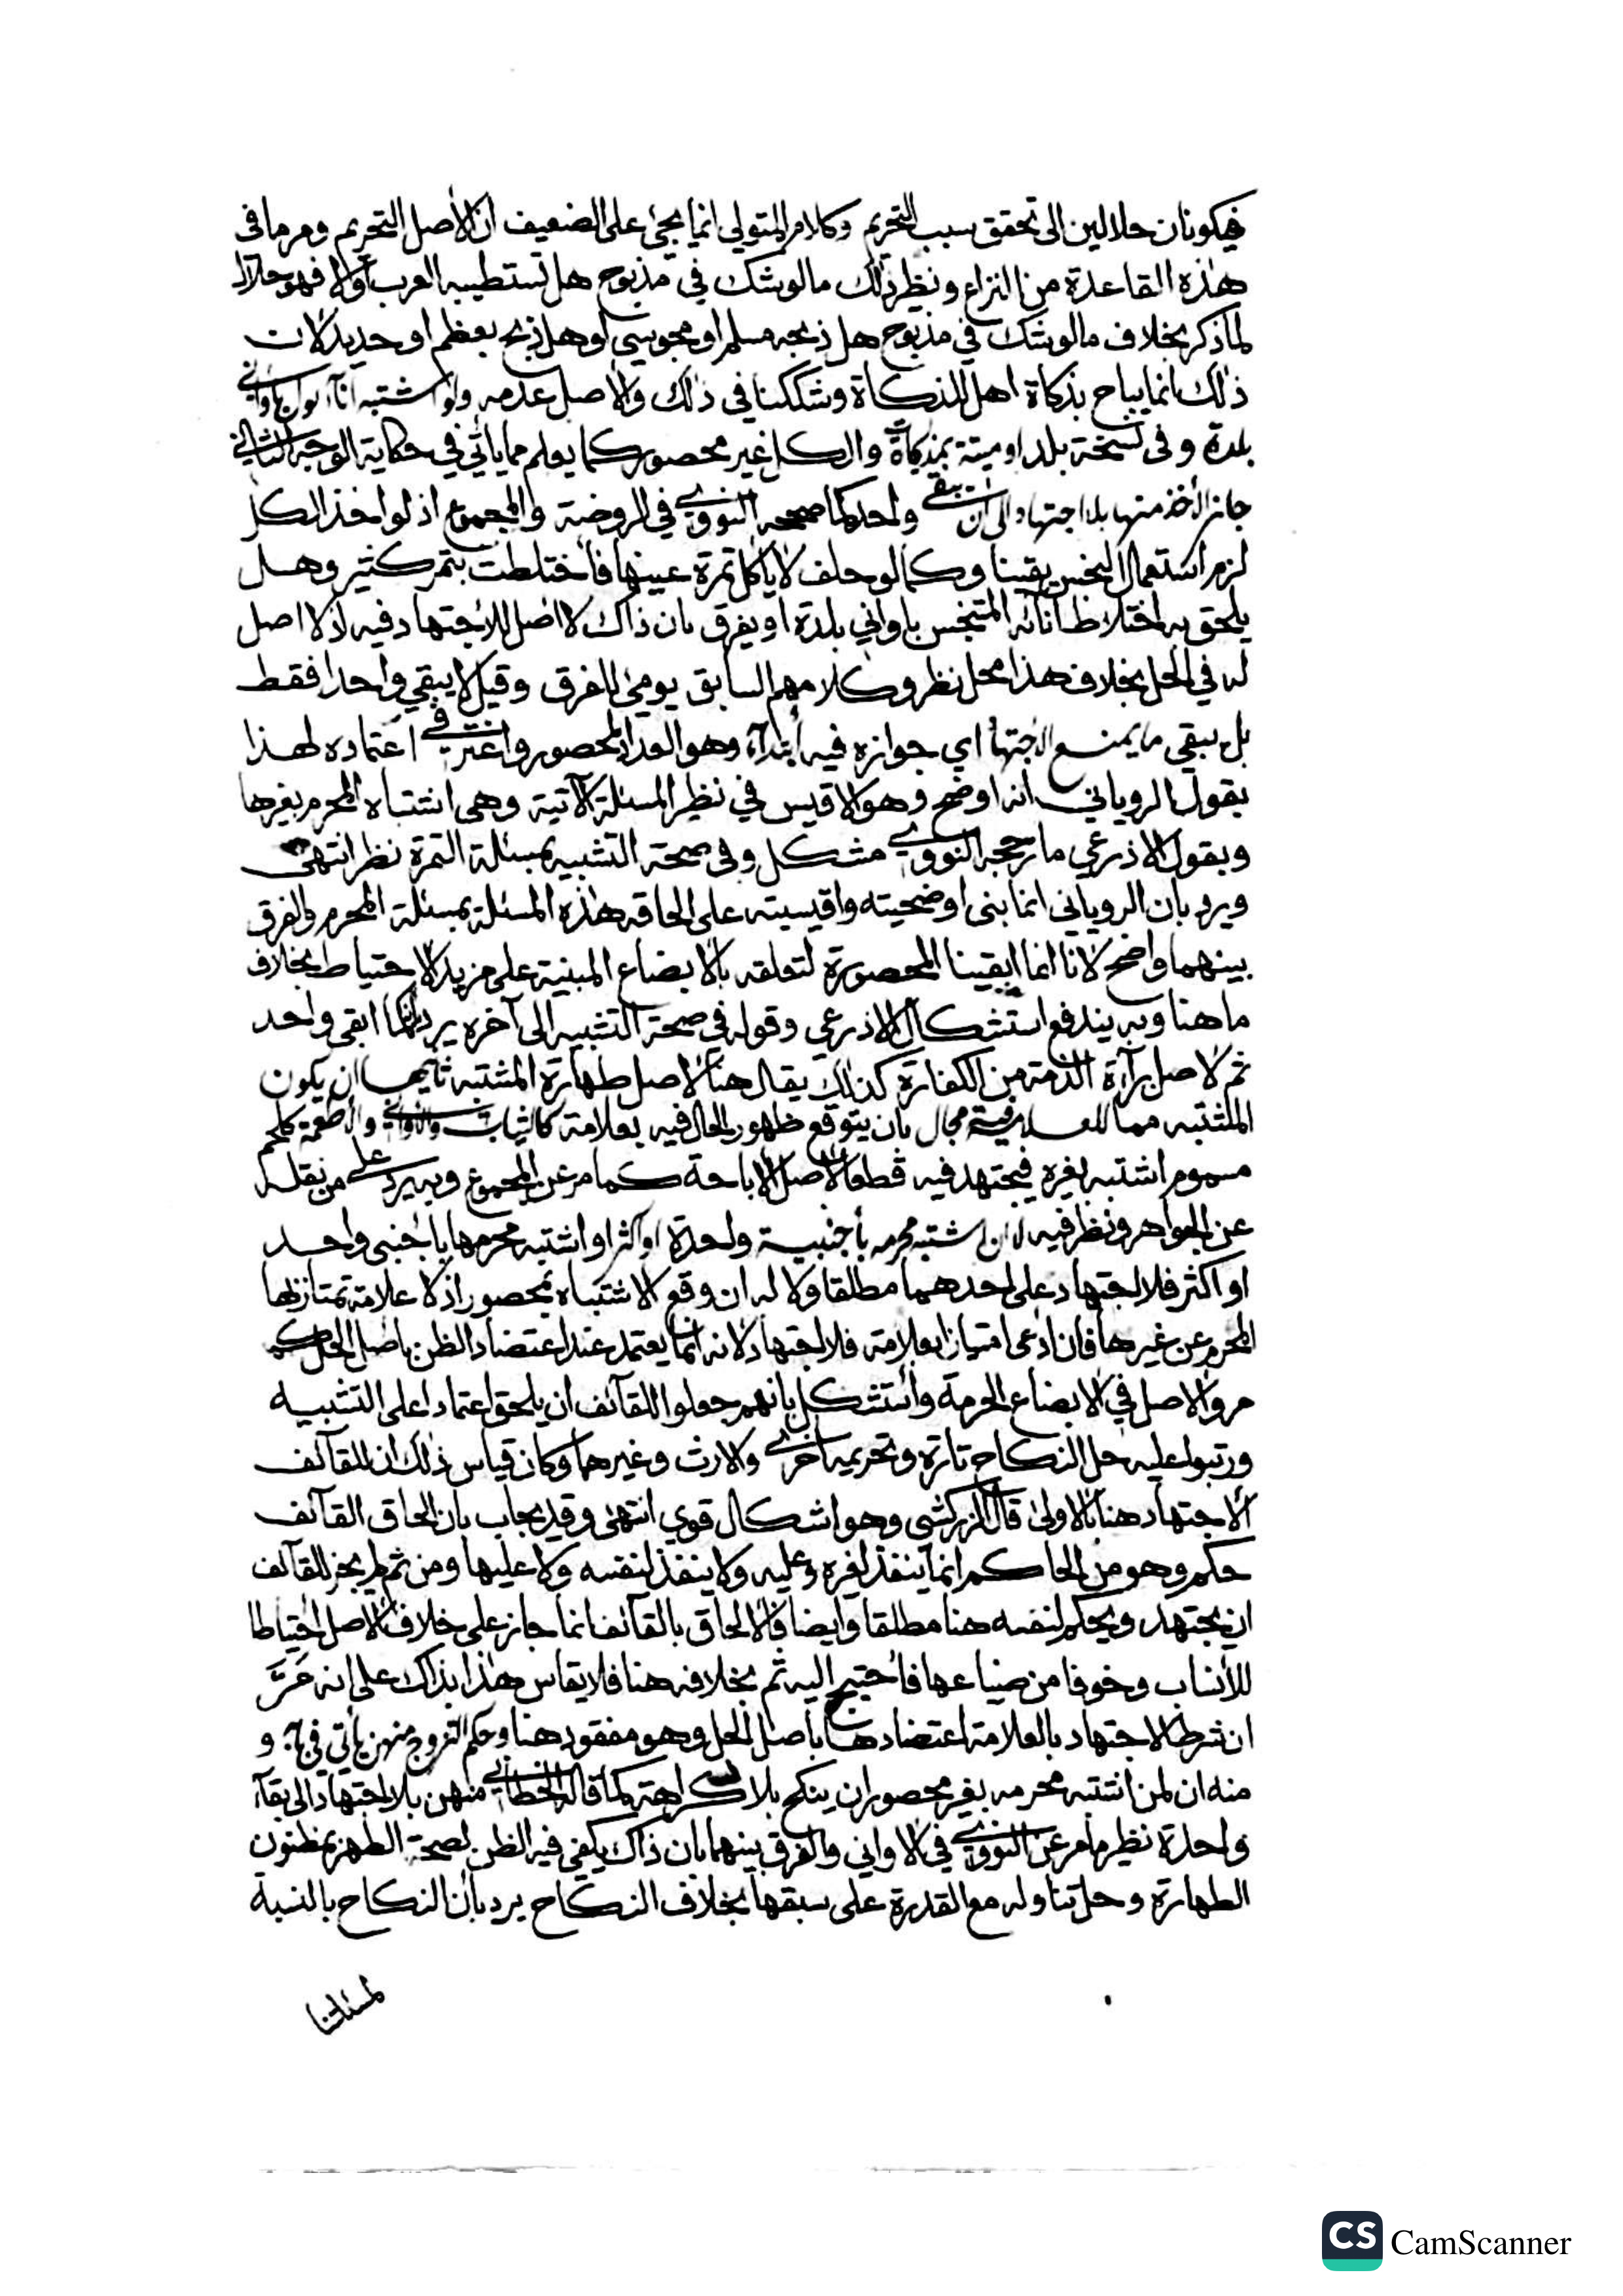 فيكونان حلالين الى تحقق سبب التحريم وكلام المتولي انما يجئ على الضعيف ان الاصل التحريم ومر ما في
هذه القاعدة من النزاع ونظير ذلك ما لو شك في مذبوح هل تستطيبه العرب أولا فهو حلال
لما ذكر بخلاف ما لو شك في مذبوح هل ذبحه مسلم او مجوسي أوهل ذبح بعظم او حديد لان
ذلك انما يباح بذكاة اهل للذكاة وشككنا في ذلك والاصل عدمه ولو اشتبه اناآ بول باواني
بلدة وفى نسخة بلد او ميتة بمذكاة والكل غير محصور كما يعلم مما يأتي في حكاية الوجه الثاني
جاز الأخذ منها بلا اجتهاد الى ان يبقى واحد كما صححه النووي في الروضة والمجموع اذ لو اخذ الكل
لزم استعمال النجس يقينا وكما لو حلف لا ياكل تمرة عينها فأختلطت بتمر كثير وهل
يلحق به اختلاط انائه المتنجس باواني بلدة او يفرق بان ذاك لا اصل للاجتهاد فيه اذ لا اصل
له في الحل بخلاف هذا محل نظر وكلامهم السابق يومئ للفرق وقيل لا يبقي واحدا فقط
بل يبقي ما يمنع الاجتهاد اي جوازه فيه ابتدآء وهو العدد المحصور واغتر في اعتماده لهذا
بقول الروياني انه اوضح وهو الاقيس في نظير المسئلة الآتية وهى اشتباه المحرم بغيرها
وبقول الاذرعي ما رجحه النووي مشكل وفي صحة التشبيه بمسئلة التمرة نظر انتهى
ويرد بان الروياني انما بنى اوضحيته واقيسيته على الحاقه هذه المسئلة بمسئلة المحرم والفرق
بينهما واضح لانا انما ابقينا المحصورة لتعلقه بالابضاع المبنية على مزيد الاحتياط بخلاف
ما هنا وبه يندفع استشكال الاذرعي وقوله في صحة التشبيه الى آخره يرد بانه كما ابقى واحد
ثم لاصل برآءة الذمة من الكفارة كذلك يقال هنا لاصل طهارة المشتبه ثانيهما ان يكون
المشتبه مما للعلامة فيه مجال بان يتوقع ظهور الحال فيه بعلامة كالثياب والاواني والاطعمة كلحم
مسموم اشتبه بغيره فيجتهد فيه قطعا لان الاصل الاباحة كما مر عن المجموع وبه يرد على من نقله
عن الجواهر ونظر فيه اذا ان اشتبه محرمه بأجنبية واحدة او اكثر او اشتبه محرمها باجنبي واحد
او اكثر فلا اجتهاد على احدهما مطلقا ولا له ان وقع الاشتباه بمحصور اذ لا علامة تمتاز بها
المحرم عن غيرها فان ادعى امتيازا بعلامة فلا اجتهاد لانه انما يعتمد عند اعتضاد الظن باصل الحل كما
مر والاصل في الابضاع الحرمة وأستشكل بانهم جعلوا للقآئف ان يلحق اعتمادا على التشبيه
ورتبوا عليه حل النكاح تارة وتحريمه اخرى والارث وغيرهما وكان قياس ذلك ان للقآئف
ألاجتهاد هنا بالاولى قال الزركشي وهو اشكال قوي انتهى وقد يجاب بان الحاق القآئف
حكم وهو من الحاكم انما ينفذ لغيره وعليه ولا ينفذ لنفسه ولا عليها ومن ثم لم يجز للقآئف
ان يجتهد ويحكم لنفسه هنا مطلقا وايضا فالالحاق بالقآئف انما جاز على خلاف الاصل احتياطا
للأنساب وخوفا من ضياعها فأحتيج اليه ثم بخلافه هنا فلا يقاس هذا بذاك على انه مَرَّ
ان شرط الاجتهاد بالعلامة اعتضادها باصل الحل وهو مفقود هنا وحكم التزوج منهن يأتي في بابه و
منه ان لمن اشتبه محرمه بغير محصور ان ينكح بلا كراهة كما قاله الخطابي منهن بلا اجتهاد الى بقآء
واحدة نظير ما مر عن النووي في الاواني والفرق بينهما بان ذاك يكفي فيه الظن لصحة الطهر بمظنون
الطهارة وحل تناوله مع القدرة على سبقها بخلاف النكاح يرد بأن النكاح بالنسبة
لمسئلتنا
CS CamScanner